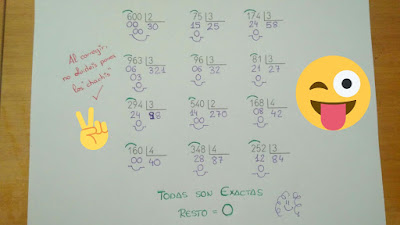 Al corregir,
no olvidéis poner
los "chachis"
600 |2 75 |3 174 |3
00 30 15 25 24 58
00 0 0
963 |3 96 |3 81 |3
06 321 06 32 21 27
03 0 0
0
294 |3 540 |2 168 |4
24 98 14 270 08 42
0 00 0
160 |4 348 |4 252 |3
00 40 28 87 12 84
0 0 0
TODAS SON EXACTAS
RESTO = 0